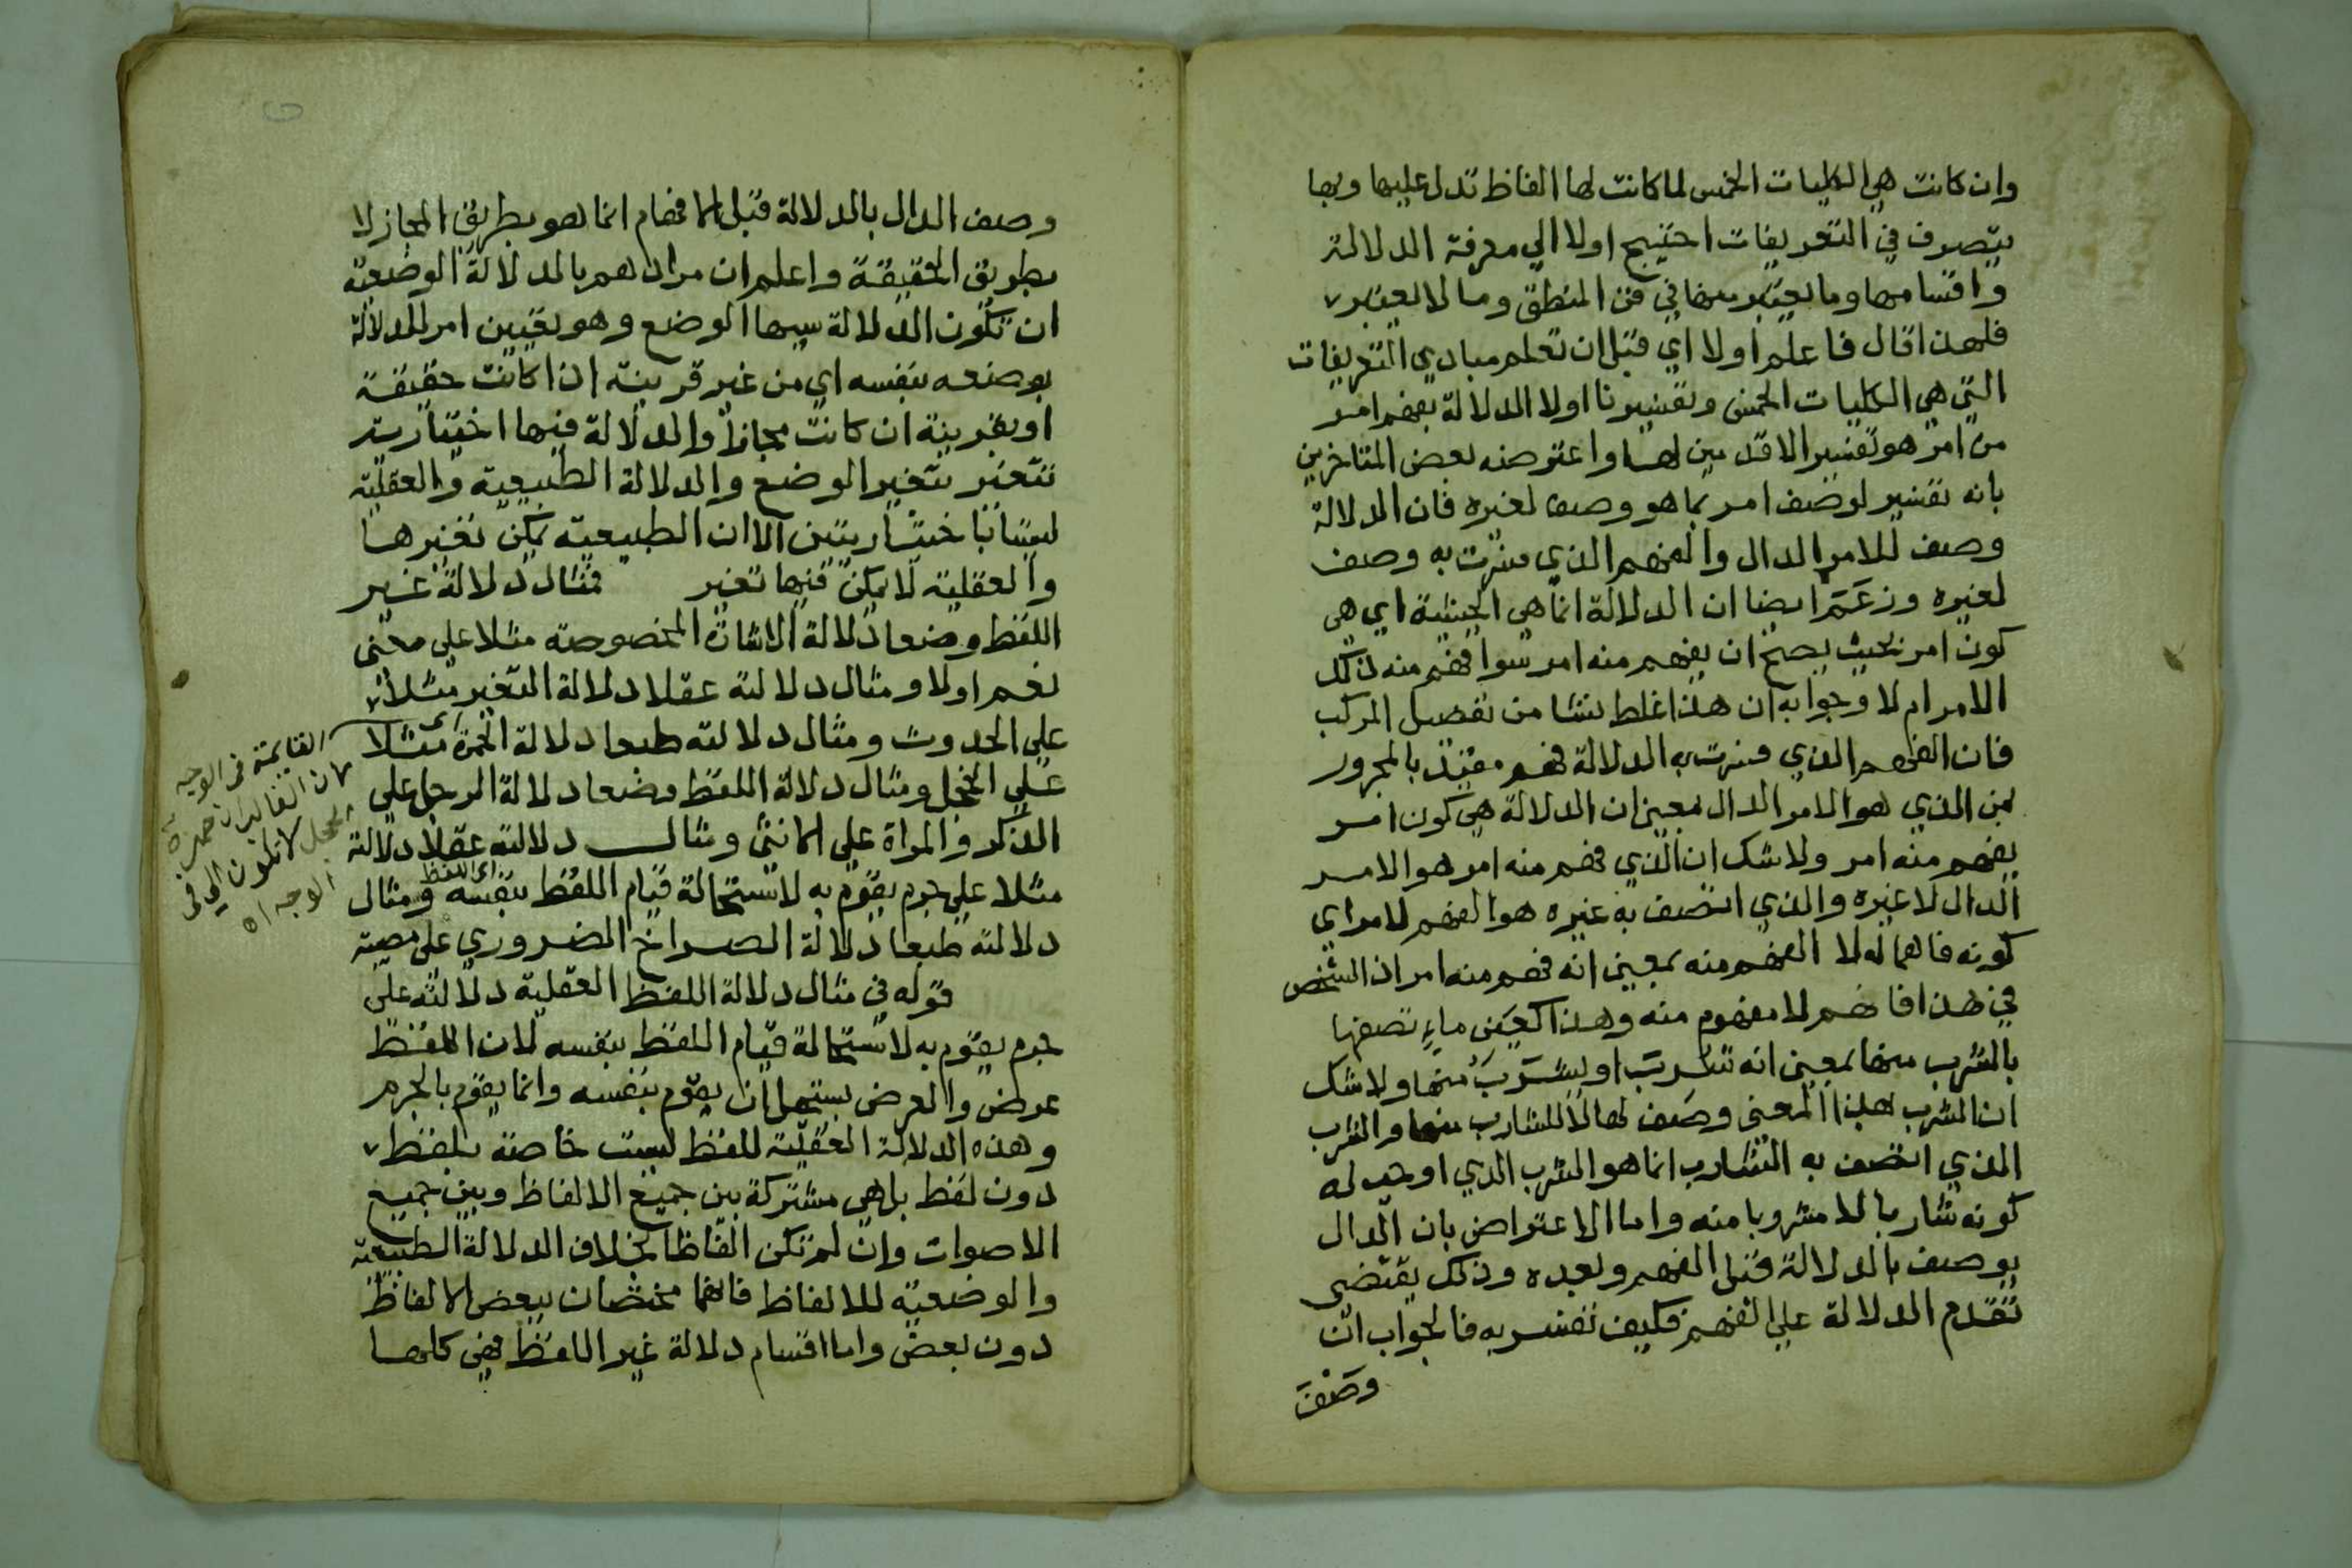 وان كانت هي الكليات الخمس لما كانت لها الفاظ تدل عليها وبها
يتصرف في التعريفات احتيج اولا الي معرفة الدلالة
واقسامها وما يعتبر منها في فن المنطق وما لا يعتبر
فلهذا قال فاعلم اولا اي قبل ان تعلم مبادي التعريفات
التي هي الكليات الخمس وتفسيرنا اولا الدلالة بفهم امر
من امر هو تفسير الاقدمين لها واعترضه بعض المتاخرين
بانه تفسير لوصف امر بما هو وصف لغيره فان الدلالة
وصف للامر الدال والفهم الذي فسرت به وصف
لغيره وزعم ايضا ان الدلالة انما هي الحيثية اي هي
كون امر بحيث يصح ان يفهم منه امر سوا فهم منه ذلك
الامر ام لا وجوابه ان هذا غلط نشا من تفصيل المركب
فان الفهم الذي فسرت به الدلالة فهم مقيد بالمجرور
بمن الذي هو الامر الدال بمعني ان الدلالة هي كون امر
يفهم منه امر ولا شك ان الذي فهم منه امر هو الامر
الدال لا غيره والذي اتصف به غيره هو الفهم لامر اي
كونه فاهما له لا الفهم منه بمعني انه فهم منه امر اذ الشخص
في هذا فاهم لا مفهوم منه وهذا كعين ماء تصفها
بالشرب منها بمعني انه شربت او يشرب منها ولا شك
ان الشرب بهذا المعني وصف لها لا للشارب منها والشرب
الذي اتصف به الشارب انما هو الشرب الذي اوجب له
كونه شاربا لا مشروبا منه واما الاعتراض بان الدال
يوصف بالدلالة قبل الفهم وبعده وذلك يقتضي
تقدم الدلالة علي الفهم فكيف تفسر به فالجواب ان
وصف
وصف الدال بالدلالة قبل الافهام انما هو بطريق المجاز لا
بطريق الحقيقة واعلم ان مرادهم بالدلالة الوضعية
ان تكون الدلالة سببها الوضع وهو تعيين امر للدلالة
بوضعه بنفسه اي من غير قرينة اذا كانت حقيقة
او بقرينة ان كانت مجازا والدلالة فيها اختيارية
تتغير بتغير الوضع والدلالة الطبيعية والعقلية
ليستا باختياريتين الا ان الطبيعية يمكن تغيرها
والعقلية لا يمكن فيها تغير فمثال دلالة غير
اللفظ وضعا دلالة الاشارة المخصوصة مثلا علي معني
نعم او لا ومثال دلالته عقلا دلالة التغير مثلا
علي الحدوث ومثال دلالته طبعا دلالة الحمرة مثلا
علي الخجل ومثال دلالة اللفظ وضعا دلالة الرجل علي
الذكر والمراة علي الانثي ومثال دلالته عقلا دلالة
مثلا علي جرم يقوم به لاستحالة قيام اللفظ بنفسه ومثال
دلالته طبعا دلالة الصراخ الضروري علي مصيبة
قوله في مثال دلالة اللفظ العقلية دلالته علي
جرم يقوم به لاستحالة قيام اللفظ بنفسه لان اللفظ
عرض والعرض يستحيل ان يقوم بنفسه وانما يقوم بالجرم
وهذه الدلالة العقلية للفظ ليست خاصة بلفظ
دون لفظ بل هي مشتركة بين جميع الالفاظ وبين جميع
الاصوات وان لم تكن الفاظا بخلاف الدلالة الطبيعية
والوضعية للالفاظ فانهما مختصان ببعض الالفاظ
دون بعض واما اقسام دلالة غير اللفظ فهي كلها
اي
القايمة في الوجه
لان الغالب ان حمرة
الخجل لا تكون الا في
الوجه اه
اي اللفظ